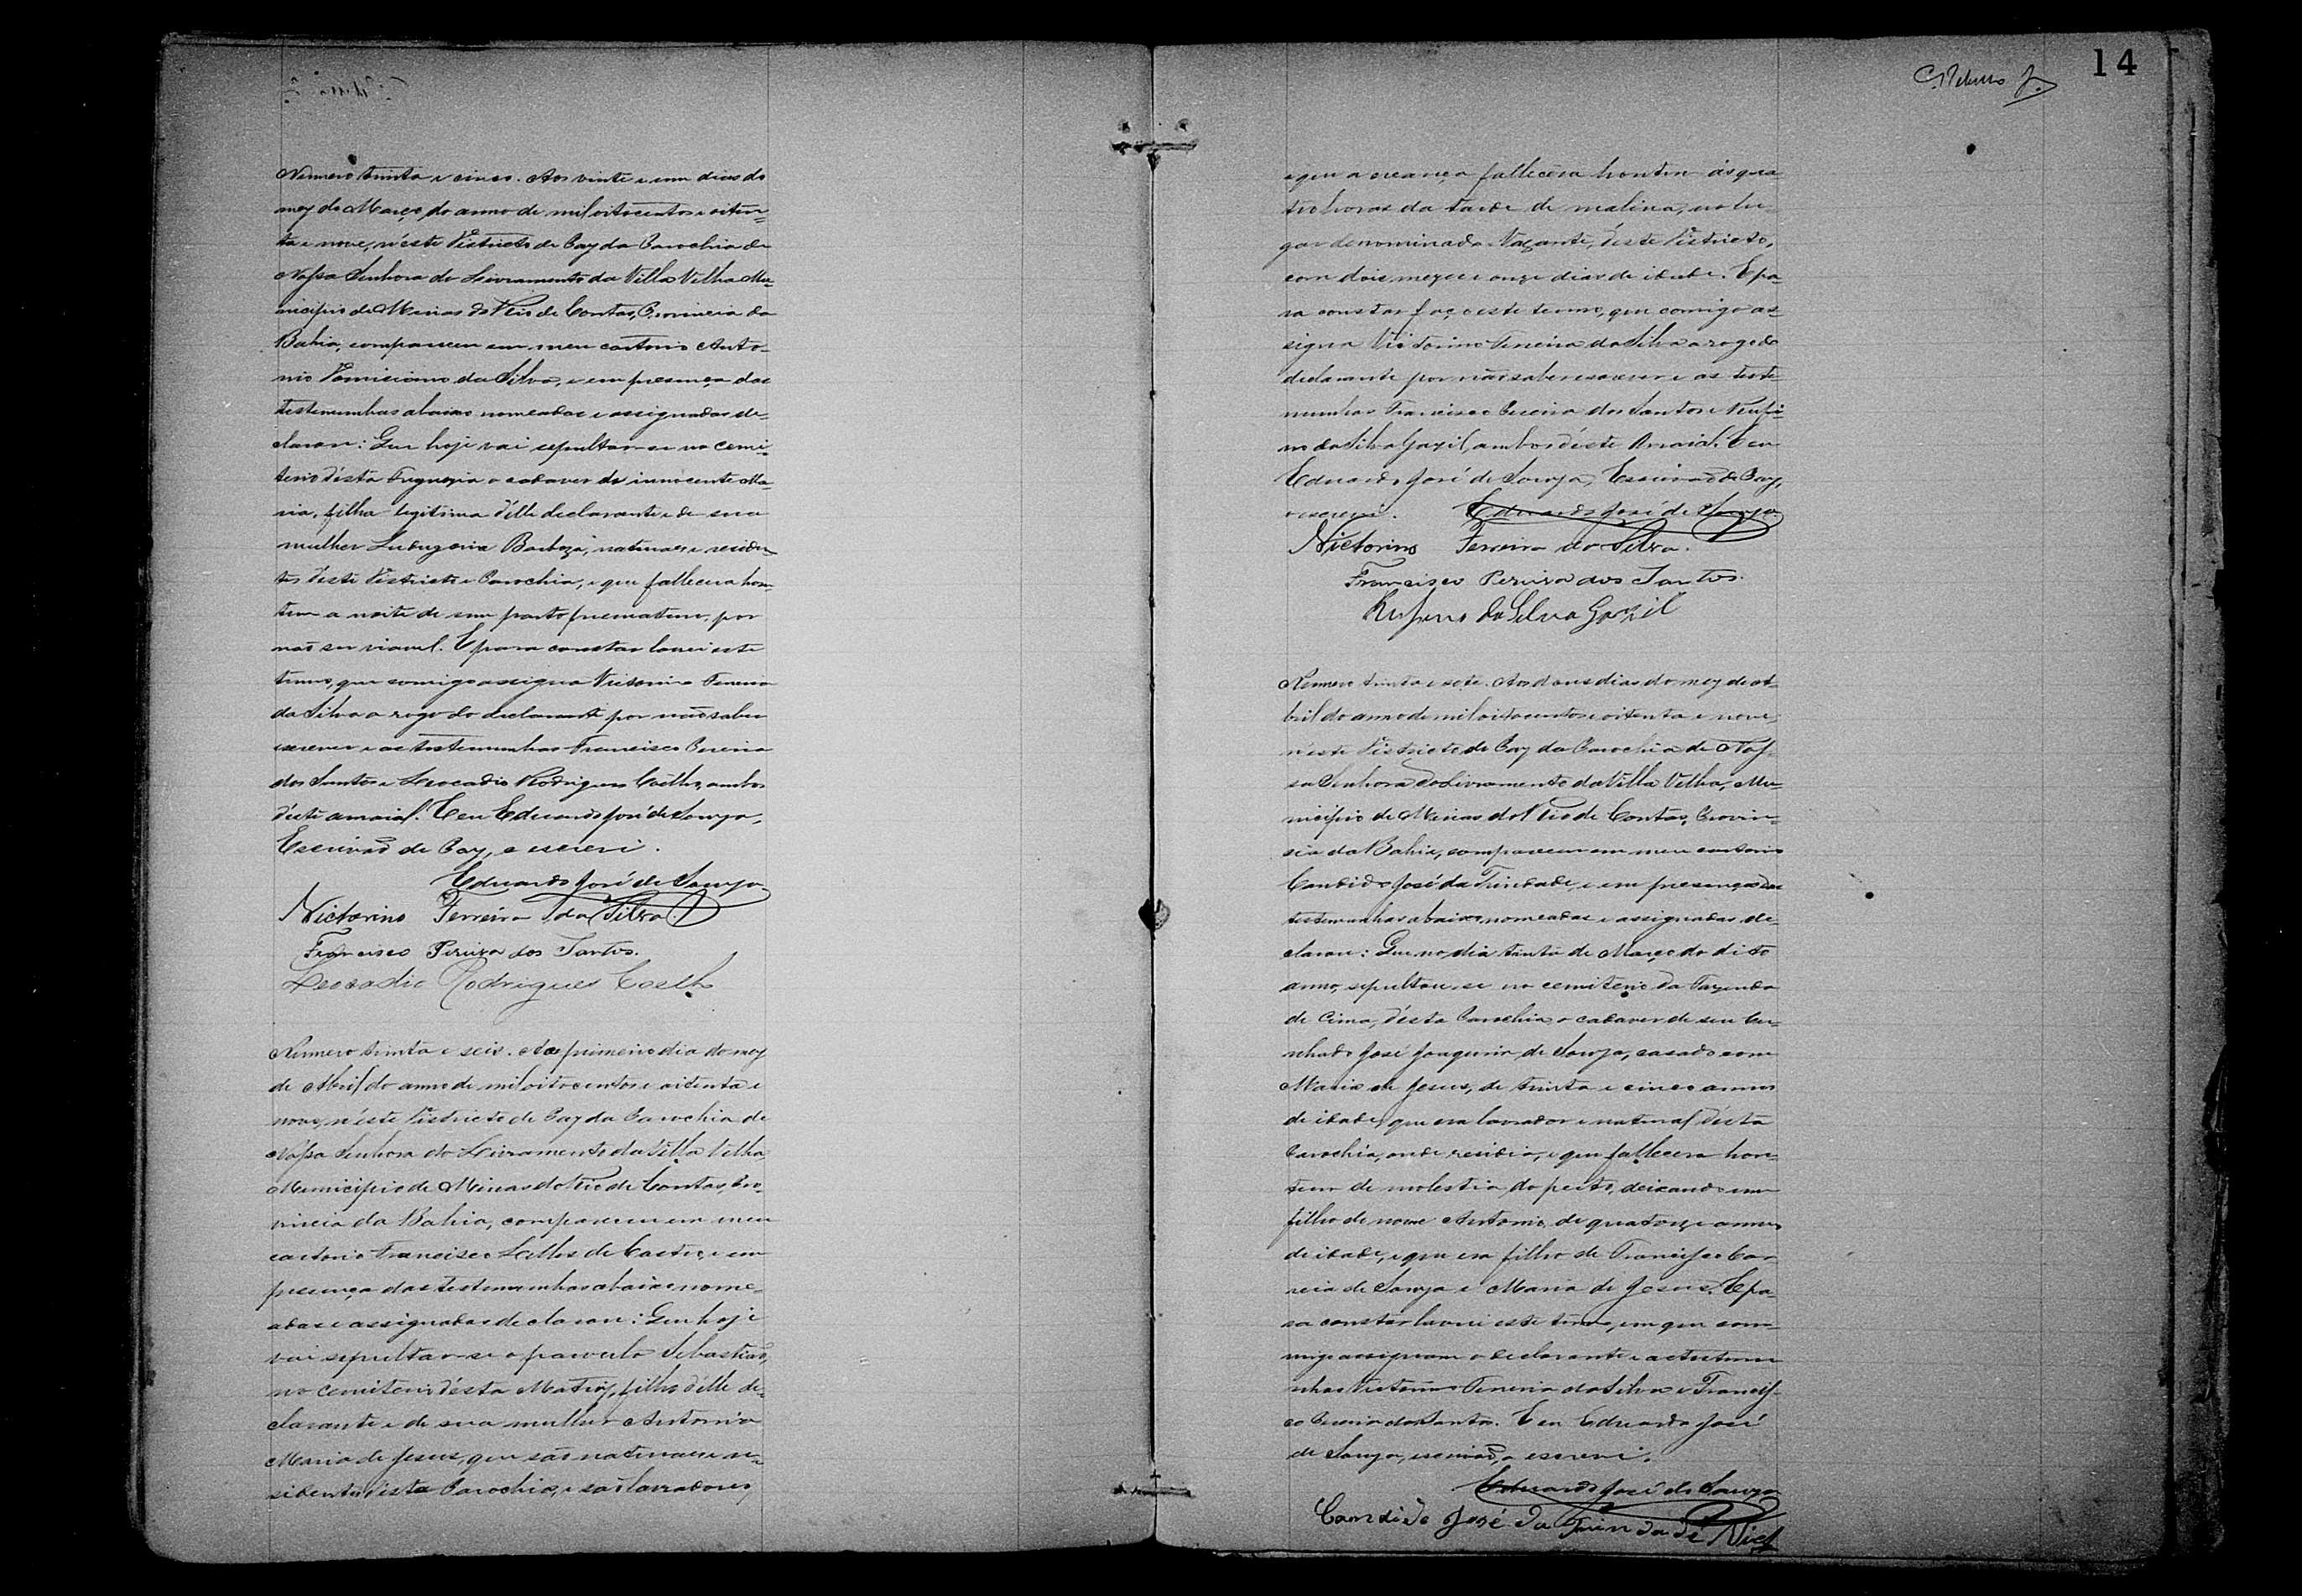 14
C. Rebello Jr.
Numero trinta e cinco. Aos vinte e um dias do
mez de Março do anno de mil oitocentos e oiten-
ta e nove, n'este Districto de Paz da Parochia de
Nossa Senhora do Livramento da Villa Velha Mu-
nicipio de Minas do Rio de Contas, Provincia da
Bahia, compareceu em meu cartorio Anto-
nio Domiciano da Silva, e em presença das
testemunhas abaixo nomeadas e assignadas de-
clarou: Que hoje vai sepultar-se no cemi-
terio d'esta Freguezia o cadaver da innocente Ma-
ria, filha legitima d'elle declarante e de sua
mulher Ludugeria Barboza, naturaes e residen-
tes d'este Districto e Parochia, e que fallecera hon-
tem a noite de um parto prematuro, por
não ser viavel. E para constar lavrei este
termo, que comigo assigna Victorino Ferreira
da Silva a rogo do declarante por não saber
escrever e as testemunhas Francisco Pereira
dos Santos e Leocadio Rodrigues Coelho, ambos
d'este arraial. E eu Eduardo José de Souza,
Escrivão de Paz, o escrevi.
Eduardo José de Souza
Victorino Ferreira da Silva.
Francisco Pereira dos Santos.
Leocadio Rodrigues Coelho
Numero trinta e seis. Ao primeiro dia do mez
de Abril do anno de mil oitocentos e oitenta e
nove, n'este Districto de Paz da Parochia de
Nossa Senhora do Livramento da Villa Velha,
Municipio de Minas do Rio de Contas, Pro-
vincia da Bahia, compareceu em meu
cartorio Francisco Telles de Castro, e em
presença das testemunhas abaixo nome-
adas e assignadas declarou: Que hoje
vai sepultar-se o parvulo Sebastião,
no cemiterio d'esta Matriz, filho d'elle de-
clarante e de sua mulher Antonia
Maria de Jesus, que são naturaes e re-
sidentes d'esta Parochia, e são lavradores,
e que a creança fallecera hontem ás qua-
tro horas da tarde de malina, no lu-
gar denominado Vazante, d'este Districto,
com dois mezes e onze dias de idade. E pa-
ra constar faço este termo, que comigo as-
signa Victorino Ferreira da Silva a rogo do
declarante por não saber escrever e as teste-
munhas Francisco Pereira dos Santos e Rufi-
no da Silva Gazil, ambos d'este Arraial. E eu
Eduardo José de Souza, Escrivão de Paz,
o escrevi. Eduardo José de Souza
Victorino Ferreira da Silva.
Francisco Pereira dos Santos.
Rufino da Silva Gazil
Numero trinta e sete. Aos dous dias do mez de A-
bril do anno de mil oitocentos e oitenta e nove,
n'este Districto de Paz da Parochia de Nos-
sa Senhora do Livramento da Villa Velha, Mu-
nicipio de Minas do Rio de Contas, Provin-
cia da Bahia, compareceu em meu cartorio
Candido José da Trindade, e em presença das
testemunhas abaixo nomeadas e assignadas de-
clarou: Que no dia trinta de Março do dito
anno, sepultou-se no cemiterio da Fazenda
de Cima, d'esta Parochia, o cadaver de seu cu-
nhado José Joaquim de Souza, casado com
Maria de Jesus, de trinta e cinco annos
de idade, que era lavrador e natural d'esta
Parochia, onde residia, e que fallecera hon-
tem de molestia do peito, deixando um
filho de nome Antonio, de quatorze annos
de idade, e que era filho de Francisco Cor-
reia de Souza e Maria de Jesus. E pa-
ra constar lavrei este termo, em que com-
migo assignam o declarante e as testemu-
nhas Victorino Ferreira da Silva e Francis-
co Pereira dos Santos. E eu Eduardo José
de Souza, escrivão, o escrevi.
Eduardo José de Souza
Candido José da Trindade